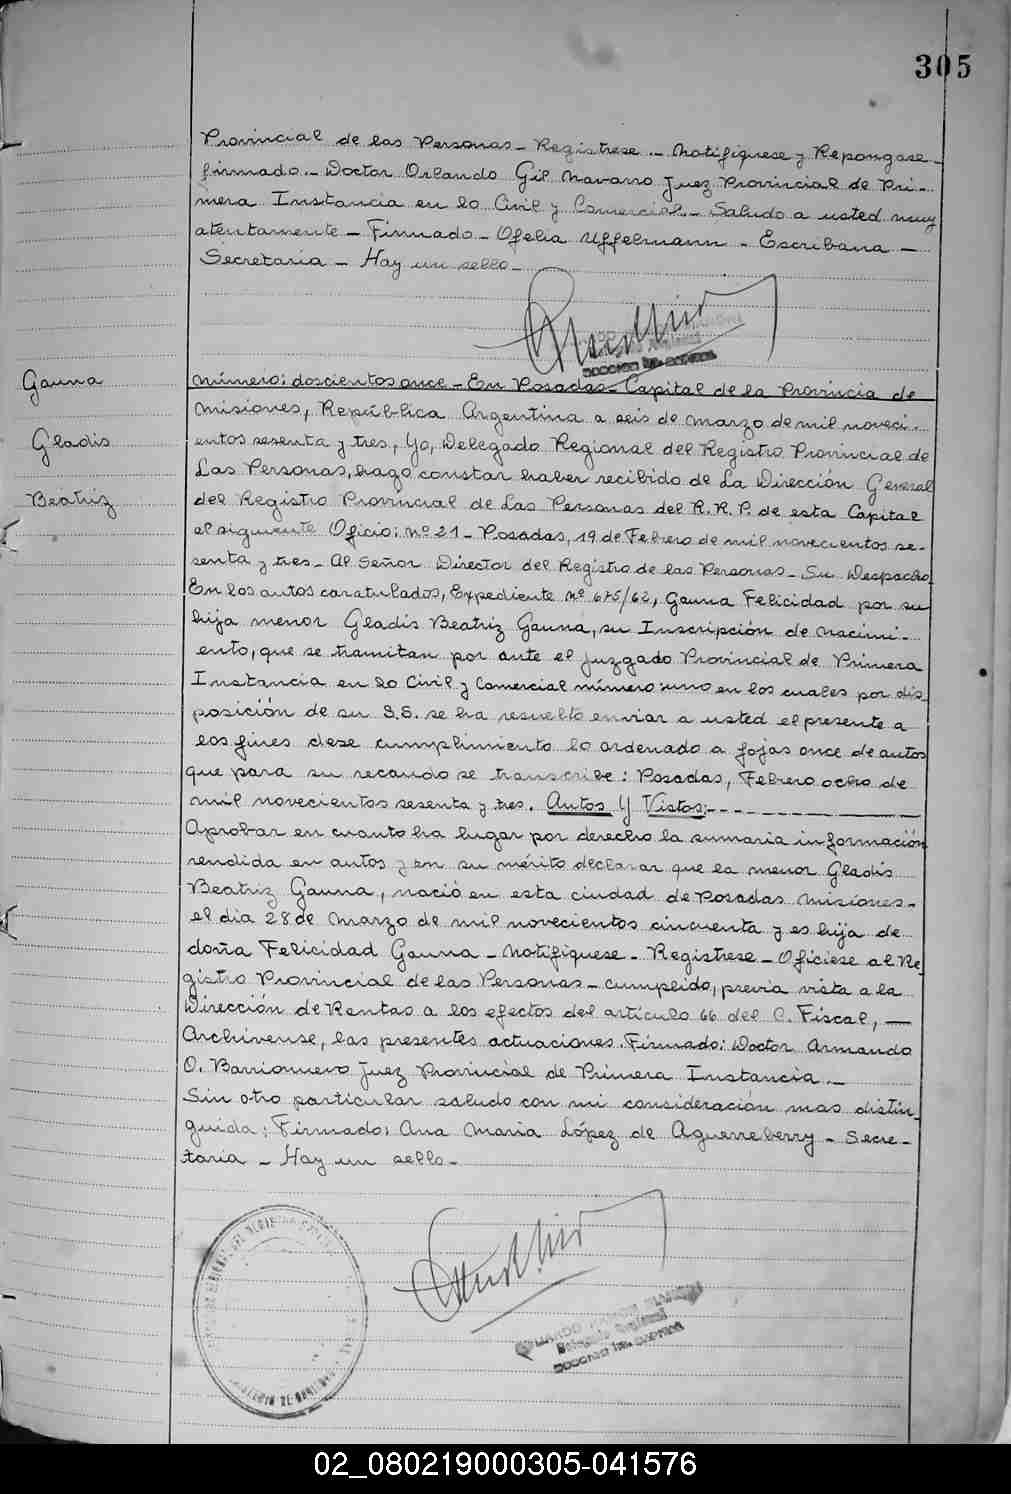 305
Provincial de las Personas - Registrese .- Notifiquese y Repongase -
firmado.- Doctor Orlando Gil Navarro Juez Provincial de Pri-
mera Instancia en lo Civil y Comercial.- Saludo a usted muy
atentamente - Firmado - Ofelia Uffelmann - Escribana -
Secretaria - Hay un sello -
Gauna
Gladis
Beatriz
Número: doscientos once - En Posadas - Capital de la Provincia de
Misiones, República Argentina a seis de marzo de mil noveci-
entos sesenta y tres, Yo, Delegado Regional del Registro Provincial de
Las Personas, hago constar haber recibido de La Dirección General
del Registro Provincial de Las Personas del R.R.P. de esta Capital
el siguiente Oficio: nº 21 - Posadas, 19 de Febrero de mil novecientos se-
senta y tres - Al Señor Director del Registro de las Personas - Su Despacho
En los autos caratulados, Expediente nº 675/62, Gauna Felicidad por su
hija menor Gladis Beatriz Gauna, su Inscripción de nacimi-
ento, que se tramitan por ante el Juzgado Provincial de Primera
Instancia en lo Civil y Comercial número: uno en los cuales por dis
posición de su S.S. se ha resuelto enviar a usted el presente a
los fines dese cumplimiento lo ordenado a fojas once de autos
que para su recaudo se transcribe: Posadas, Febrero ocho de
mil novecientos sesenta y tres. Autos Y Vistos:
Aprobar en cuanto ha lugar por derecho la sumaria información
rendida en autos y en su mérito declarar que la menor Gladis
Beatriz Gauna, nació en esta ciudad de Posadas Misiones -
el dia 28 de Marzo de mil novecientos cincuenta y es hija de
doña Felicidad Gauna - Notifiquese - Registrese - Oficiese al Re-
gistro Provincial de las Personas - cumplido, previa vista a la
Dirección de Rentas a los efectos del artículo 66 del C. Fiscal, —
Archivense, las presentes actuaciones. Firmado: Doctor Armando
O. Barrionuevo Juez Provincial de Primera Instancia.-
Sin otro particular saludo con mi consideración mas distin-
guida; Firmado: Ana Maria López de Aguerreberry - Secre-
taria - Hay un sello -
02_080219000305-041576